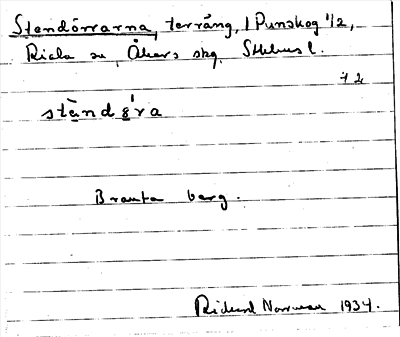 Stendörrarna, terräng, 1 Punskog 1/2,
Riala sn, Åkers skg. Sthlms l.
72
stäǹdǫ̈́ra
Branta berg.
Rickard Norrman 1934.